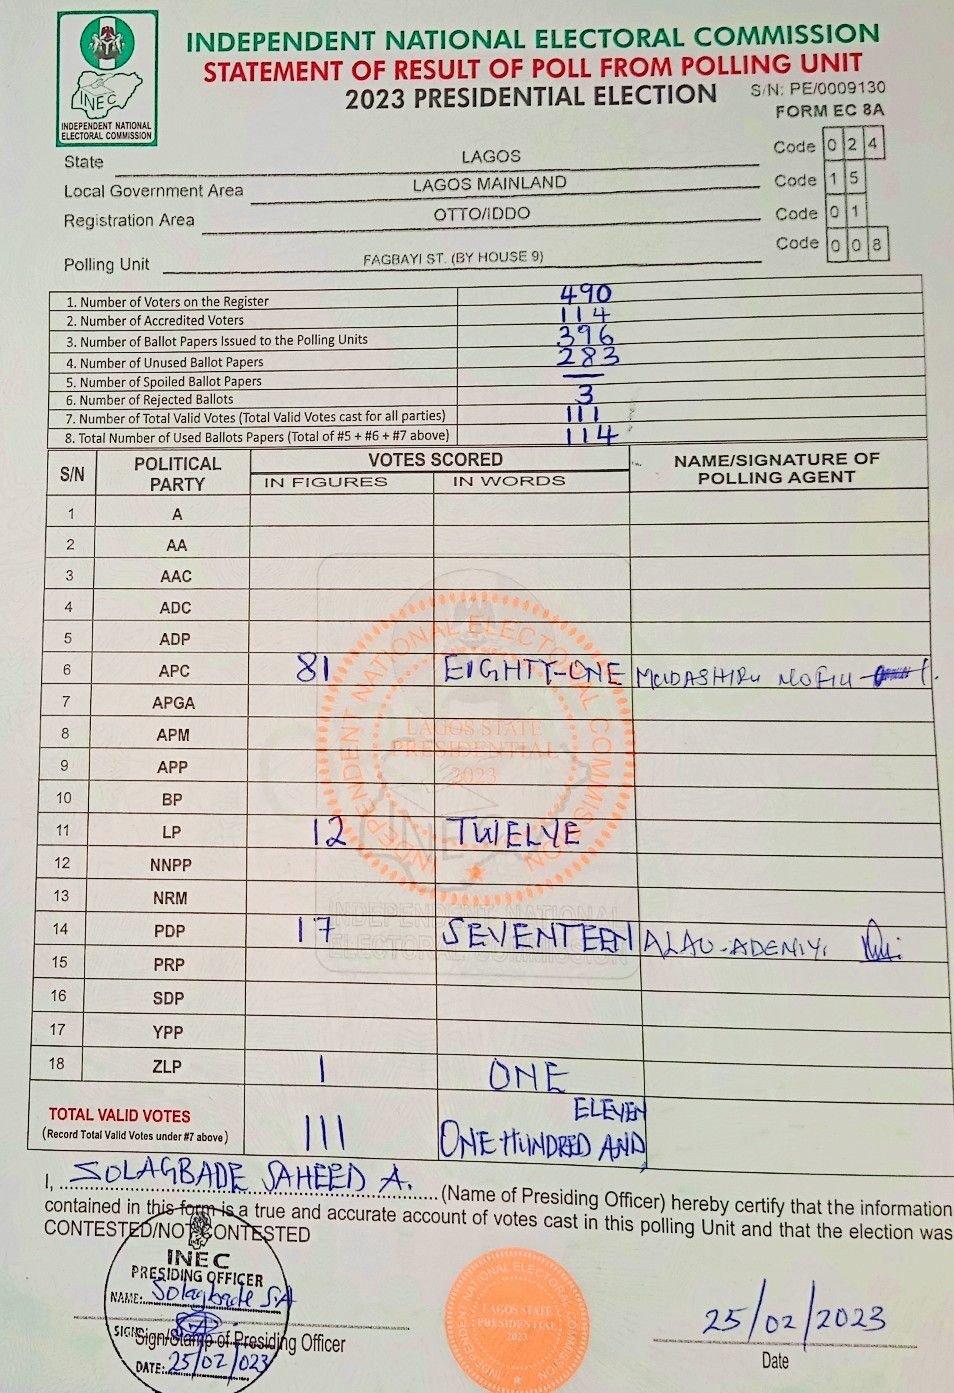 INDEPENDENT NATIONAL ELECTORAL COMMISSION
STATEMENT OF RESULT OF POLL FROM POLLING UNIT
2023 PRESIDENTIAL ELECTION
S/N: PE/0009130
FORM EC 8A
INEC
INDEPENDENT NATIONAL
ELECTORAL COMMISSION
State LAGOS Code 0 2 4
Local Government Area LAGOS MAINLAND Code 1 5
Registration Area OTTO/IDDO Code 0 1
Polling Unit FAGBAYI ST. (BY HOUSE 9) Code 0 0 8
1. Number of Voters on the Register 490
2. Number of Accredited Voters 114
3. Number of Ballot Papers Issued to the Polling Units 396
4. Number of Unused Ballot Papers 283
5. Number of Spoiled Ballot Papers —
6. Number of Rejected Ballots 3
7. Number of Total Valid Votes (Total Valid Votes cast for all parties) 111
8. Total Number of Used Ballots Papers (Total of #5 + #6 + #7 above) 114
S/N POLITICAL PARTY VOTES SCORED NAME/SIGNATURE OF POLLING AGENT
IN FIGURES IN WORDS
1 A
2 AA
3 AAC
4 ADC
5 ADP
6 APC 81 EIGHTY-ONE MUDASHIRU NOFIU
7 APGA
8 APM
9 APP
10 BP
11 LP 12 TWELVE
12 NNPP
13 NRM
14 PDP 17 SEVENTEEN ALAO-ADENIYI
15 PRP
16 SDP
17 YPP
18 ZLP 1 ONE
TOTAL VALID VOTES 111 ONE HUNDRED AND ELEVEN
(Record Total Valid Votes under #7 above)
INDEPENDENT NATIONAL ELECTORAL COMMISSION
LAGOS STATE
PRESIDENTIAL
2023
INDEPENDENT NATIONAL
ELECTORAL COMMISSION
I, SOLAGBADE SAHEED A. (Name of Presiding Officer) hereby certify that the information
contained in this form is a true and accurate account of votes cast in this polling Unit and that the election was
CONTESTED/NOT CONTESTED
INEC
PRESIDING OFFICER
NAME: Solagbade S.A
SIGN:
DATE: 25/02/023
Sign/Stamp of Presiding Officer
INDEPENDENT NATIONAL ELECTORAL COMMISSION
LAGOS STATE
PRESIDENTIAL
2023
25/02/2023
Date